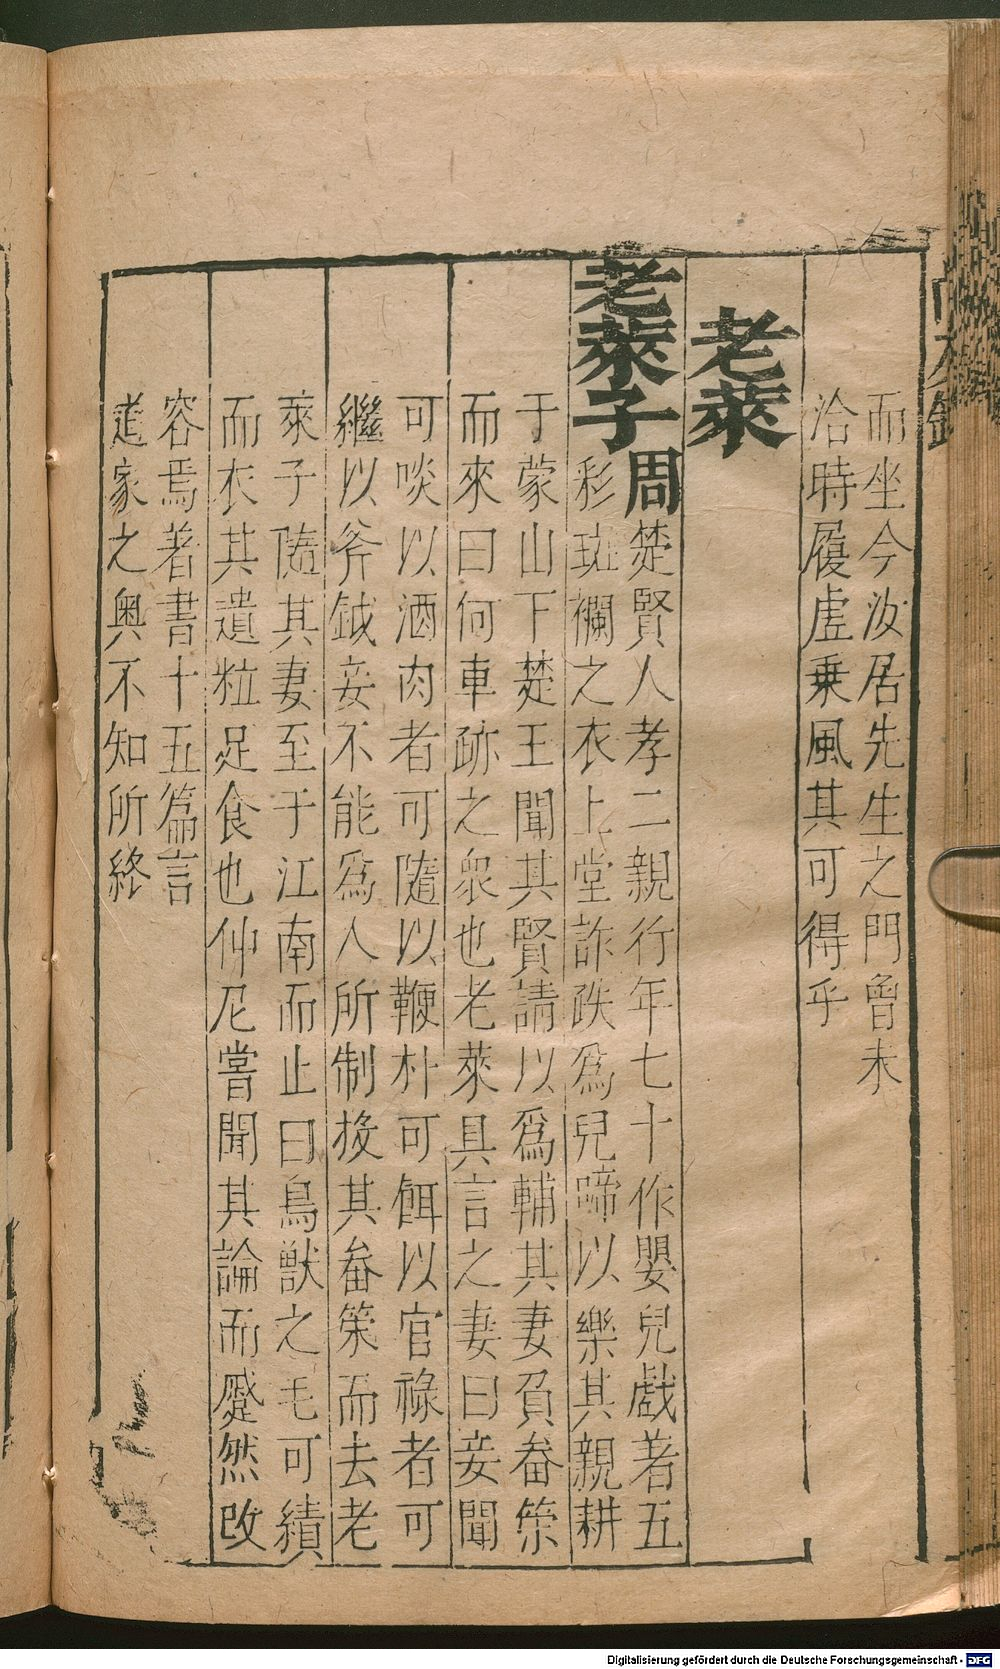 而坐今汝居先生之門曾未
洽時履虛乗風其可得乎
老萊
老萊子周楚賢人孝二親行年七十作嬰兒戯著五
彩斑襴之衣上堂詐跌爲兒啼以樂其親耕
于蒙山下楚王聞其賢請以爲輔其妻負畚䇿
而來曰何車跡之衆也老萊具言之妻曰妾聞
可啖以酒肉者可隨以鞭朴可餌以官祿者可
繼以斧鉞妾不能爲人所制投其畚䇿而去老
萊子隨其妻至于江南而止曰鳥獸之毛可績
而衣其遺粒足食也仲尼嘗聞其論而蹙然改
容焉著書十五篇言
道家之奥不知所終
Digitalisierung gefördert durch die Deutsche Forschungsgemeinschaft - DFG